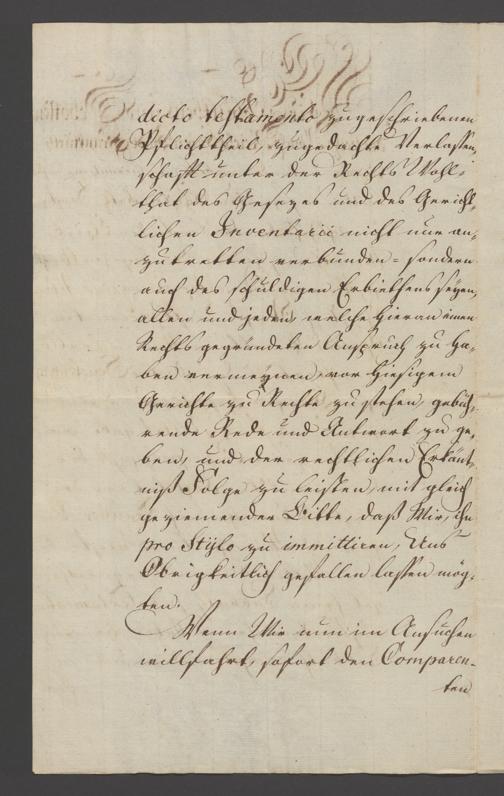 dicto testamento zugeschriebenen
Pflichttheil, zugedachte Verlassen,
schafft unter der Rechts Wohl-
that des Gesezes und des Gericht,
lichen Inventarii nicht nur an,
zutretten verbunden- sondern
auch des schuldigen Erbiethens seyen,
allen und jeden, welche hieran einen
Rechts gegründeten Anspruch zu ha,
ben vermeynen, vor hiesigem
Gerichte zu Rechte zu stehen, gebüh,
rende Rede und Antwort zu ge,
ben, und der rechtlichen Erkännt,
niß Folge zu leisten, mit gleich
geziemender Bitte, daß Wir, ihn
pro Stylo zu immittiren, Uns
Obrigkeitlich gefallen lassen mög-
ten.
Wenn Wir nun im Ansuchen
willfahrt, sofort den Comparen-
ten